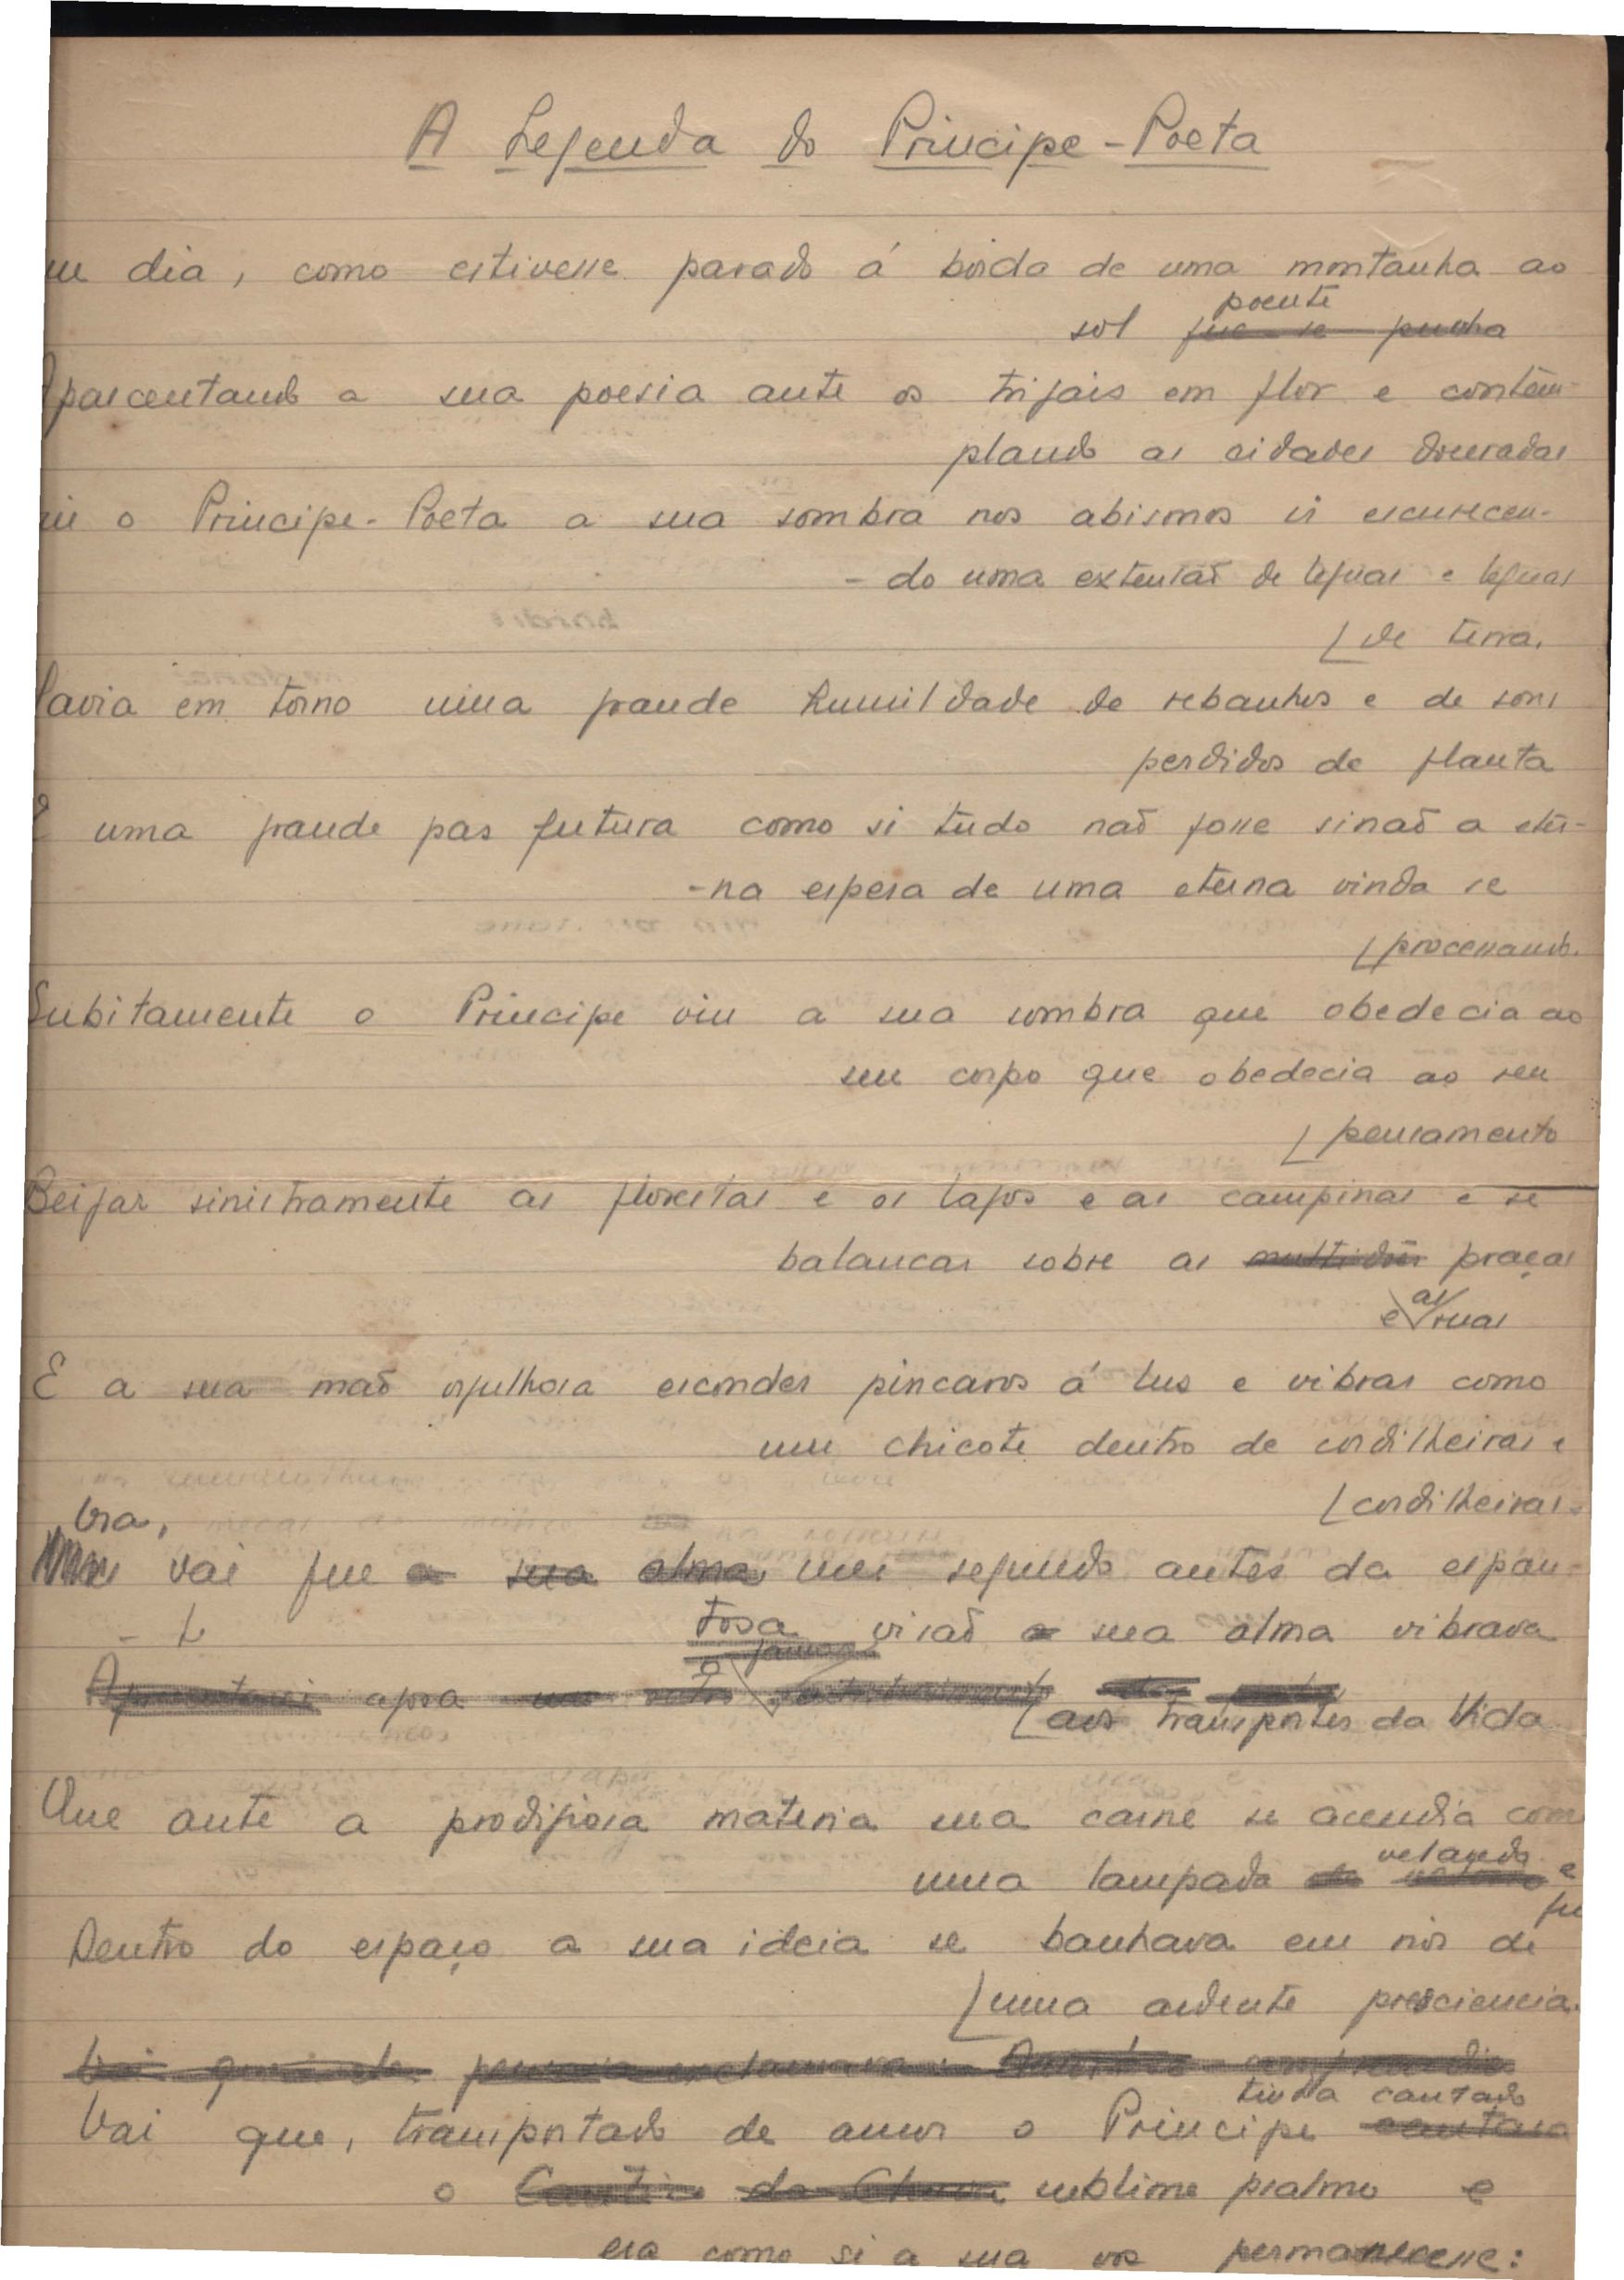 A Legenda do Principe-Poeta
um dia, como estivesse parado á borda de uma montanha ao
poente
sol que se punha
Apascentando a sua poesia ante os trigais em flor e contem-
plando as cidades douradas
viu o Principe-Poeta a sua sombra nos abismos ir escurecen-
- do uma extensão de leguas e leguas
[de terra.
Havia em torno uma grande humildade de rebanhos e de sons
perdidos de flauta
E uma grande paz futura como si tudo não fosse sinão a eter-
-na espera de uma eterna vinda se
[processando.
Subitamente o Principe viu a sua sombra que obedecia ao
seu corpo que obedecia ao seu
[pensamento
Beijar sinistramente as florestas e os lagos e as campinas e se
balançar sobre as multidões praças
e as ruas
E a sua mão orgulhosa esconder pincaros á luz e vibrar como
um chicote dentro de cordilheiras e
[cordilheiras.
Ora,
vai que a sua alma um segundo antes da espan-
tosa visão a sua alma vibrava
agora
[aos transportes da Vida
Que ante a prodigiosa materia sua carne se acendia como
velando
uma lampada e
que
Dentro do espaço a sua ideia se banhava em rios de
[uma ardente presciencia.
tinha cantado
Vai que, transportado de amor o Principe cantava
o Cantico da Chuva sublime psalmo e
era como si a sua voz permanecesse: